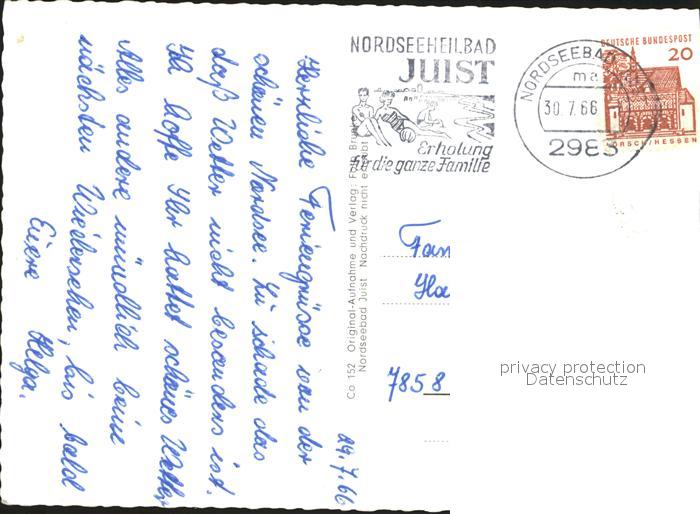 NORDSEEHEILBAD
JUIST
Erholung
für die ganze Familie
NORDSEEBAD
30.7.66
2983
DEUTSCHE BUNDESPOST
20
LORSCH/HESSEN
29.7.66
Herrliche Feriengrüsse von der
schönen Nordsee. Zu schade das
daß Wetter nicht besonders ist.
Ich hoffe Ihr hattet schönes Wetter
Alles andere mündlich beim
nächsten Wiedersehen, bis bald
Eure Helga.
Co 152 Original-Aufnahme und Verlag:
Nordseebad Juist Nachdruck nicht erlaubt
Fam
Ha
7858
privacy protection
Datenschutz